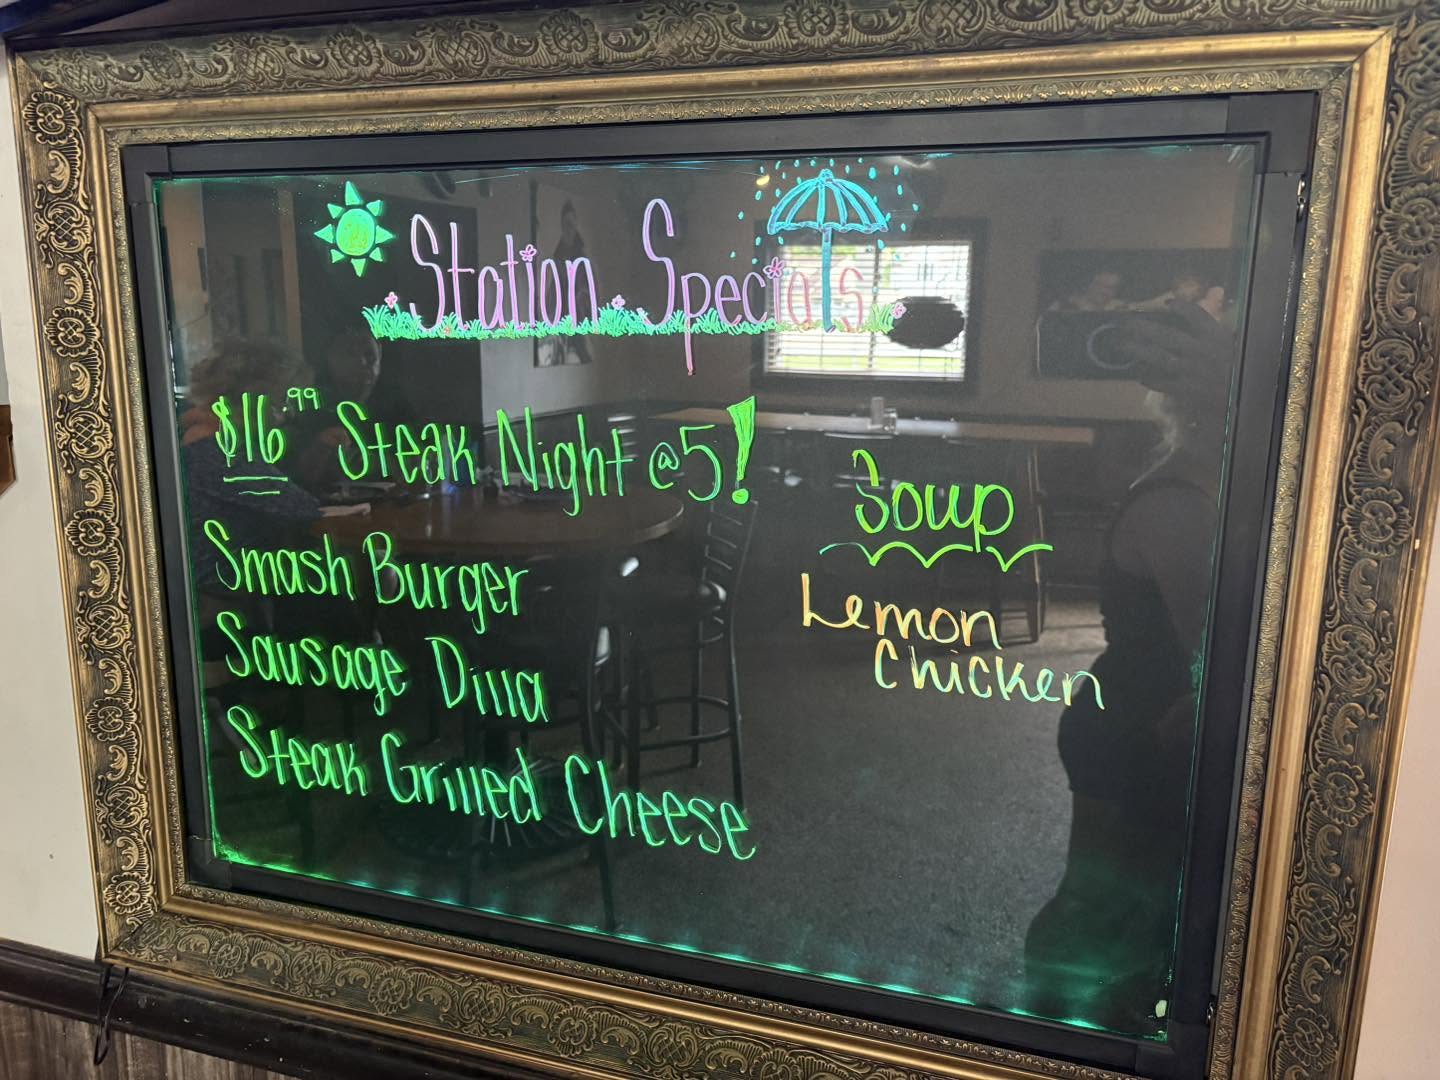 Station Specials
$16.99 Steak Night @5!
Smash Burger
Sausage Dilla
Steak Grilled Cheese
Soup
Lemon
Chicken